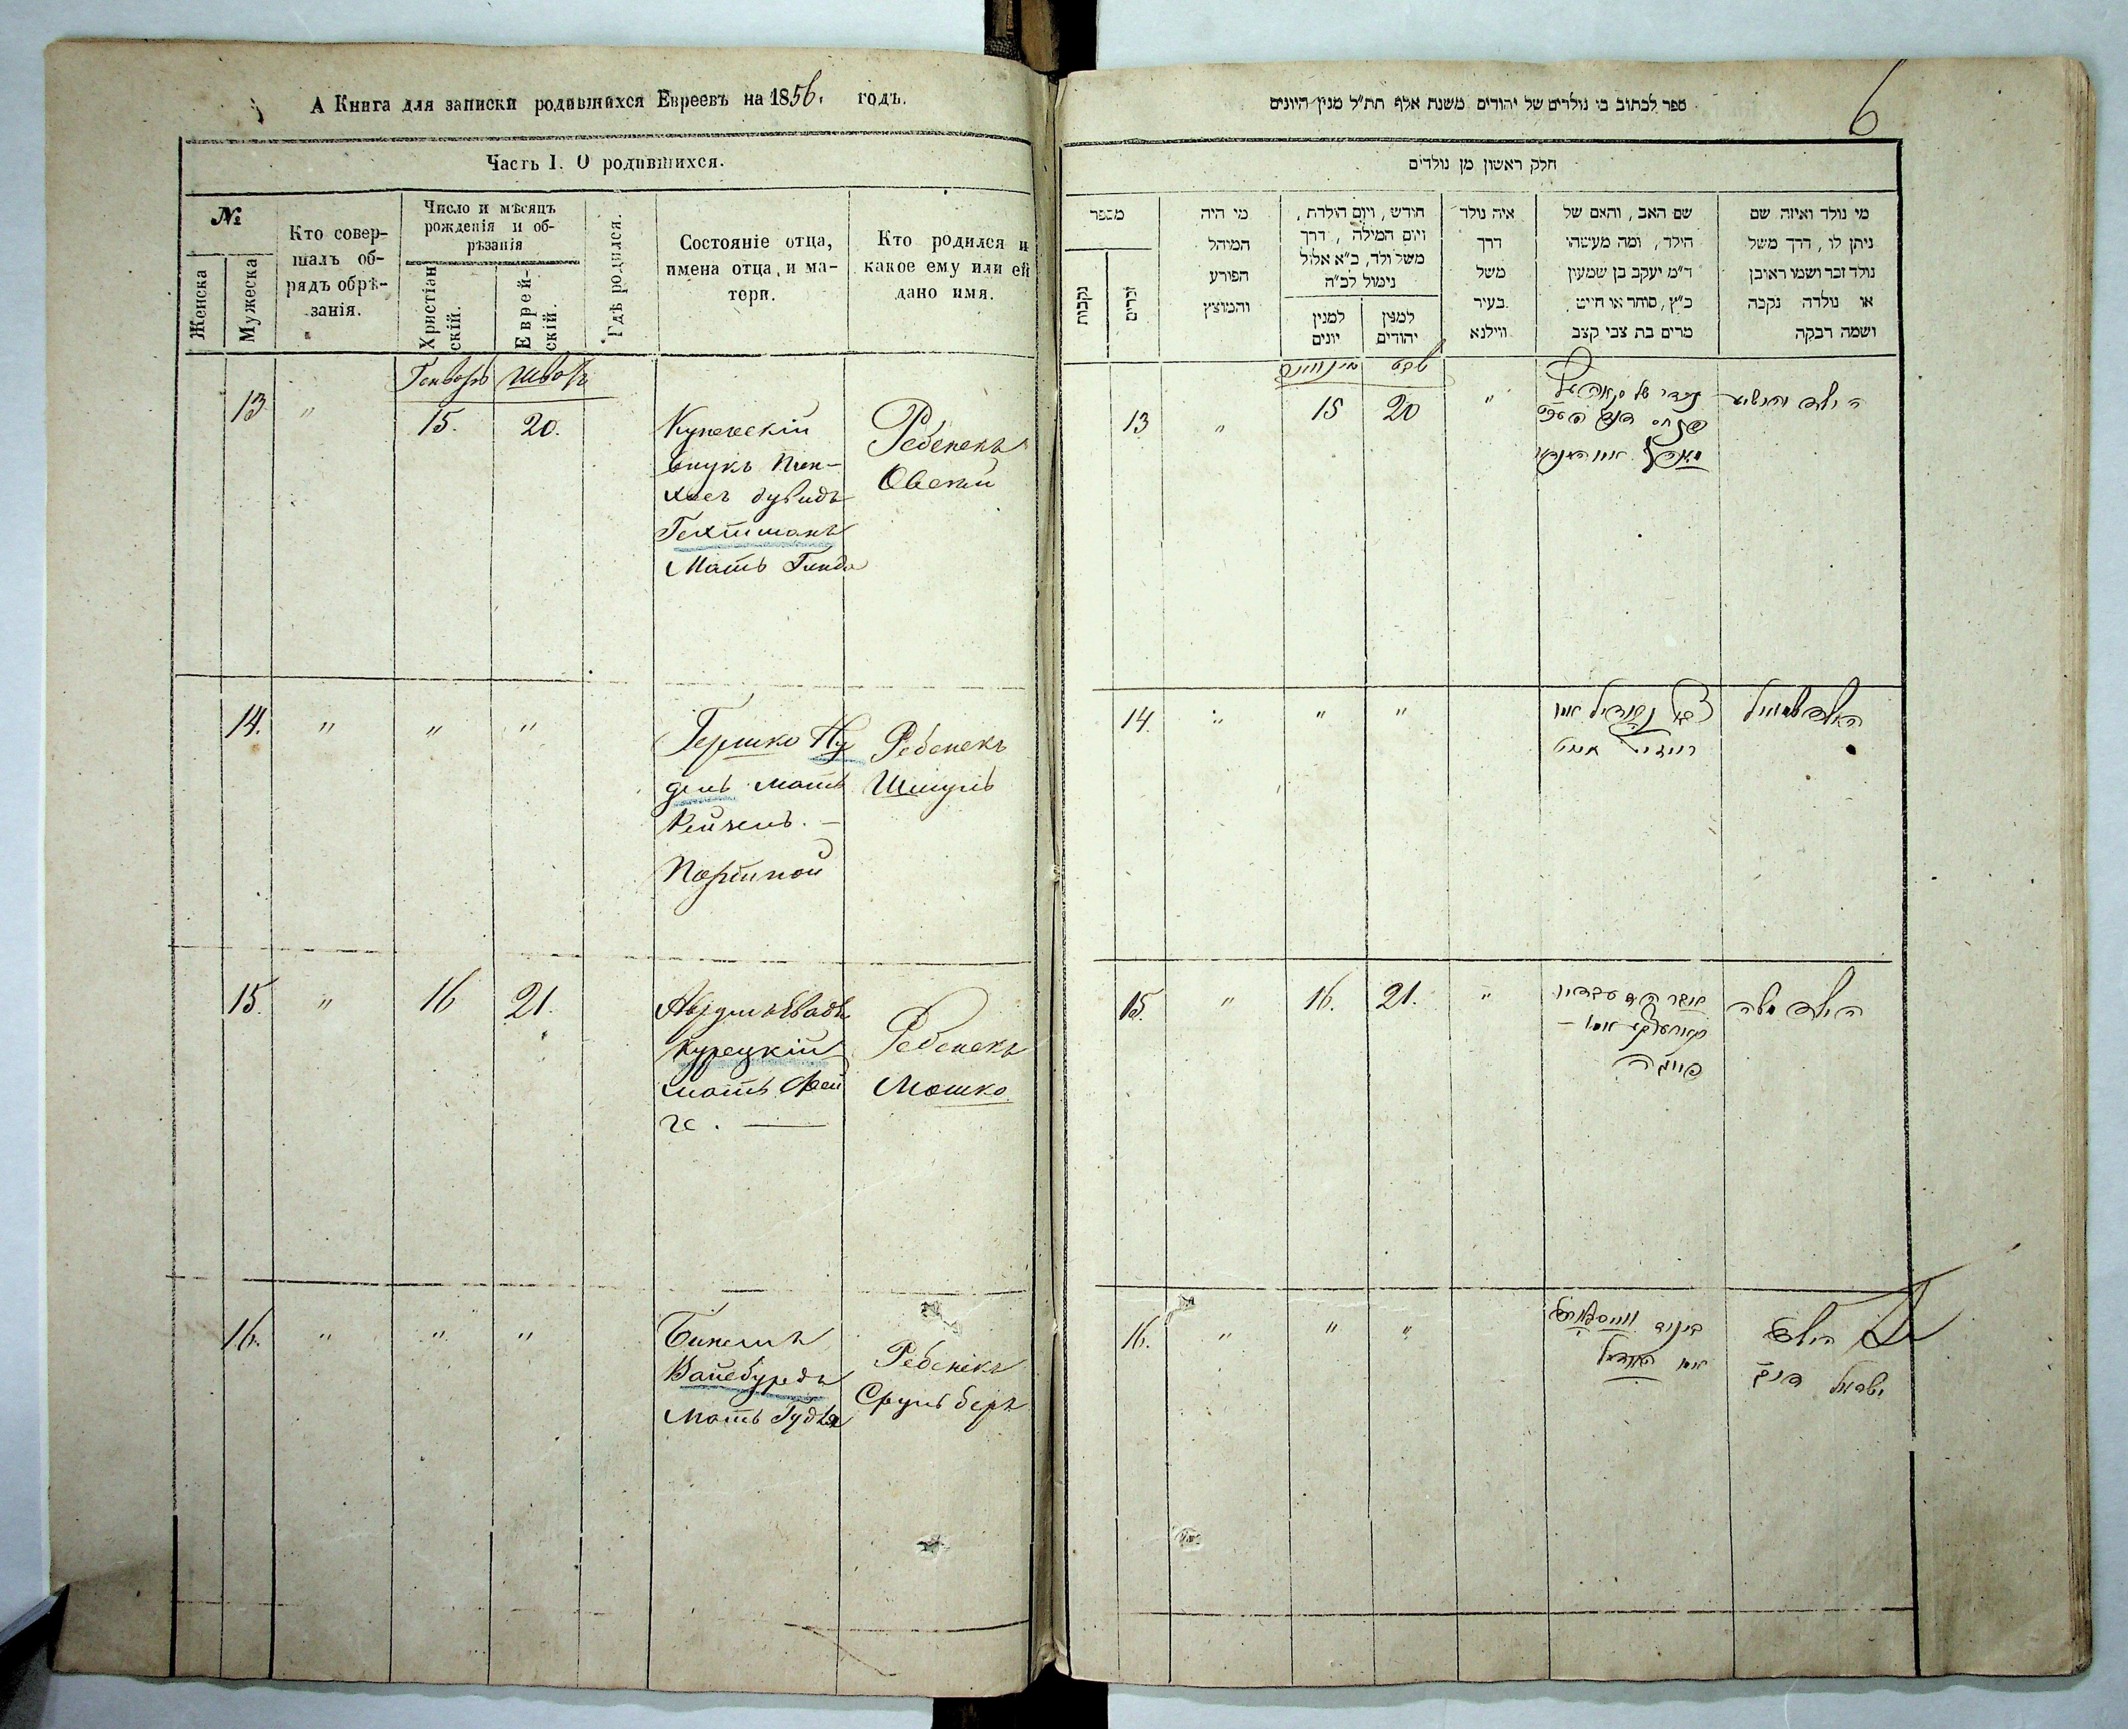 А Книга для записки родившихся Евреевъ на 1856. годъ.
Часть I. О родившихся.
№
Женска
Мужеска
Кто совер-
шалъ об-
рядъ обрѣ-
занія.
Число и мѣсяцъ
рожденія и об-
рѣзанія
Христіан
скій.
Еврей-
скій.
Гдѣ родился.
Состояніе отца,
имена отца, и ма-
тери.
Кто родился и
какое ему или ей
дано имя.
Генварь
13
"
15.
20.
Купеческій
внукъ Пин-
хосъ дувидъ
Гехтманъ
Мать Гинда
Ребенекъ
Овсей
14.
"
"
"
Гершко Ну
дель мать
Рейзель. —
Портной
Ребенекъ
Шмуль
15.
"
16
21.
Курецкій
мать Фей
ге. —
Ребенекъ
Мошко
16.
"
"
"
Вайсбурдъ
Мать Гудля
Ребенікъ
Сруль беръ
6
ספר לכתוב בו נולדים של יהודים משנת אלף תת"ל מנין היונים
חלק ראשון מן נולדים
מספר
נקבות
זכרים
מי היה
המוהל
הפורע
והמוצץ
חודש, ויום הולדת,
ויום המילה, דרך
משל ולד, כ"א אלול
נימול לכ"ה
למנין
יונים
למנין
יהודים
איה נולד
דרך
משל
בעיר
ווילנא
שם האב, והאם של
הילד, ומה מעשהו
ד"מ יעקב בן שמעון
כ"ץ, סוחר או חייט
מרים בת צבי קצב
מי נולד ואיזה שם
ניתן לו, דרך משל
נולד זכר ושמו ראובן
או נולדה נקבה
ושמה רבקה
שבט
13
"
15
20
"
הילד יהושיע
14.
"
"
"
הילד שמואל
15.
"
16.
21.
"
פייגה
הילד משה
16.
"
"
"
הילד
ישראל בער